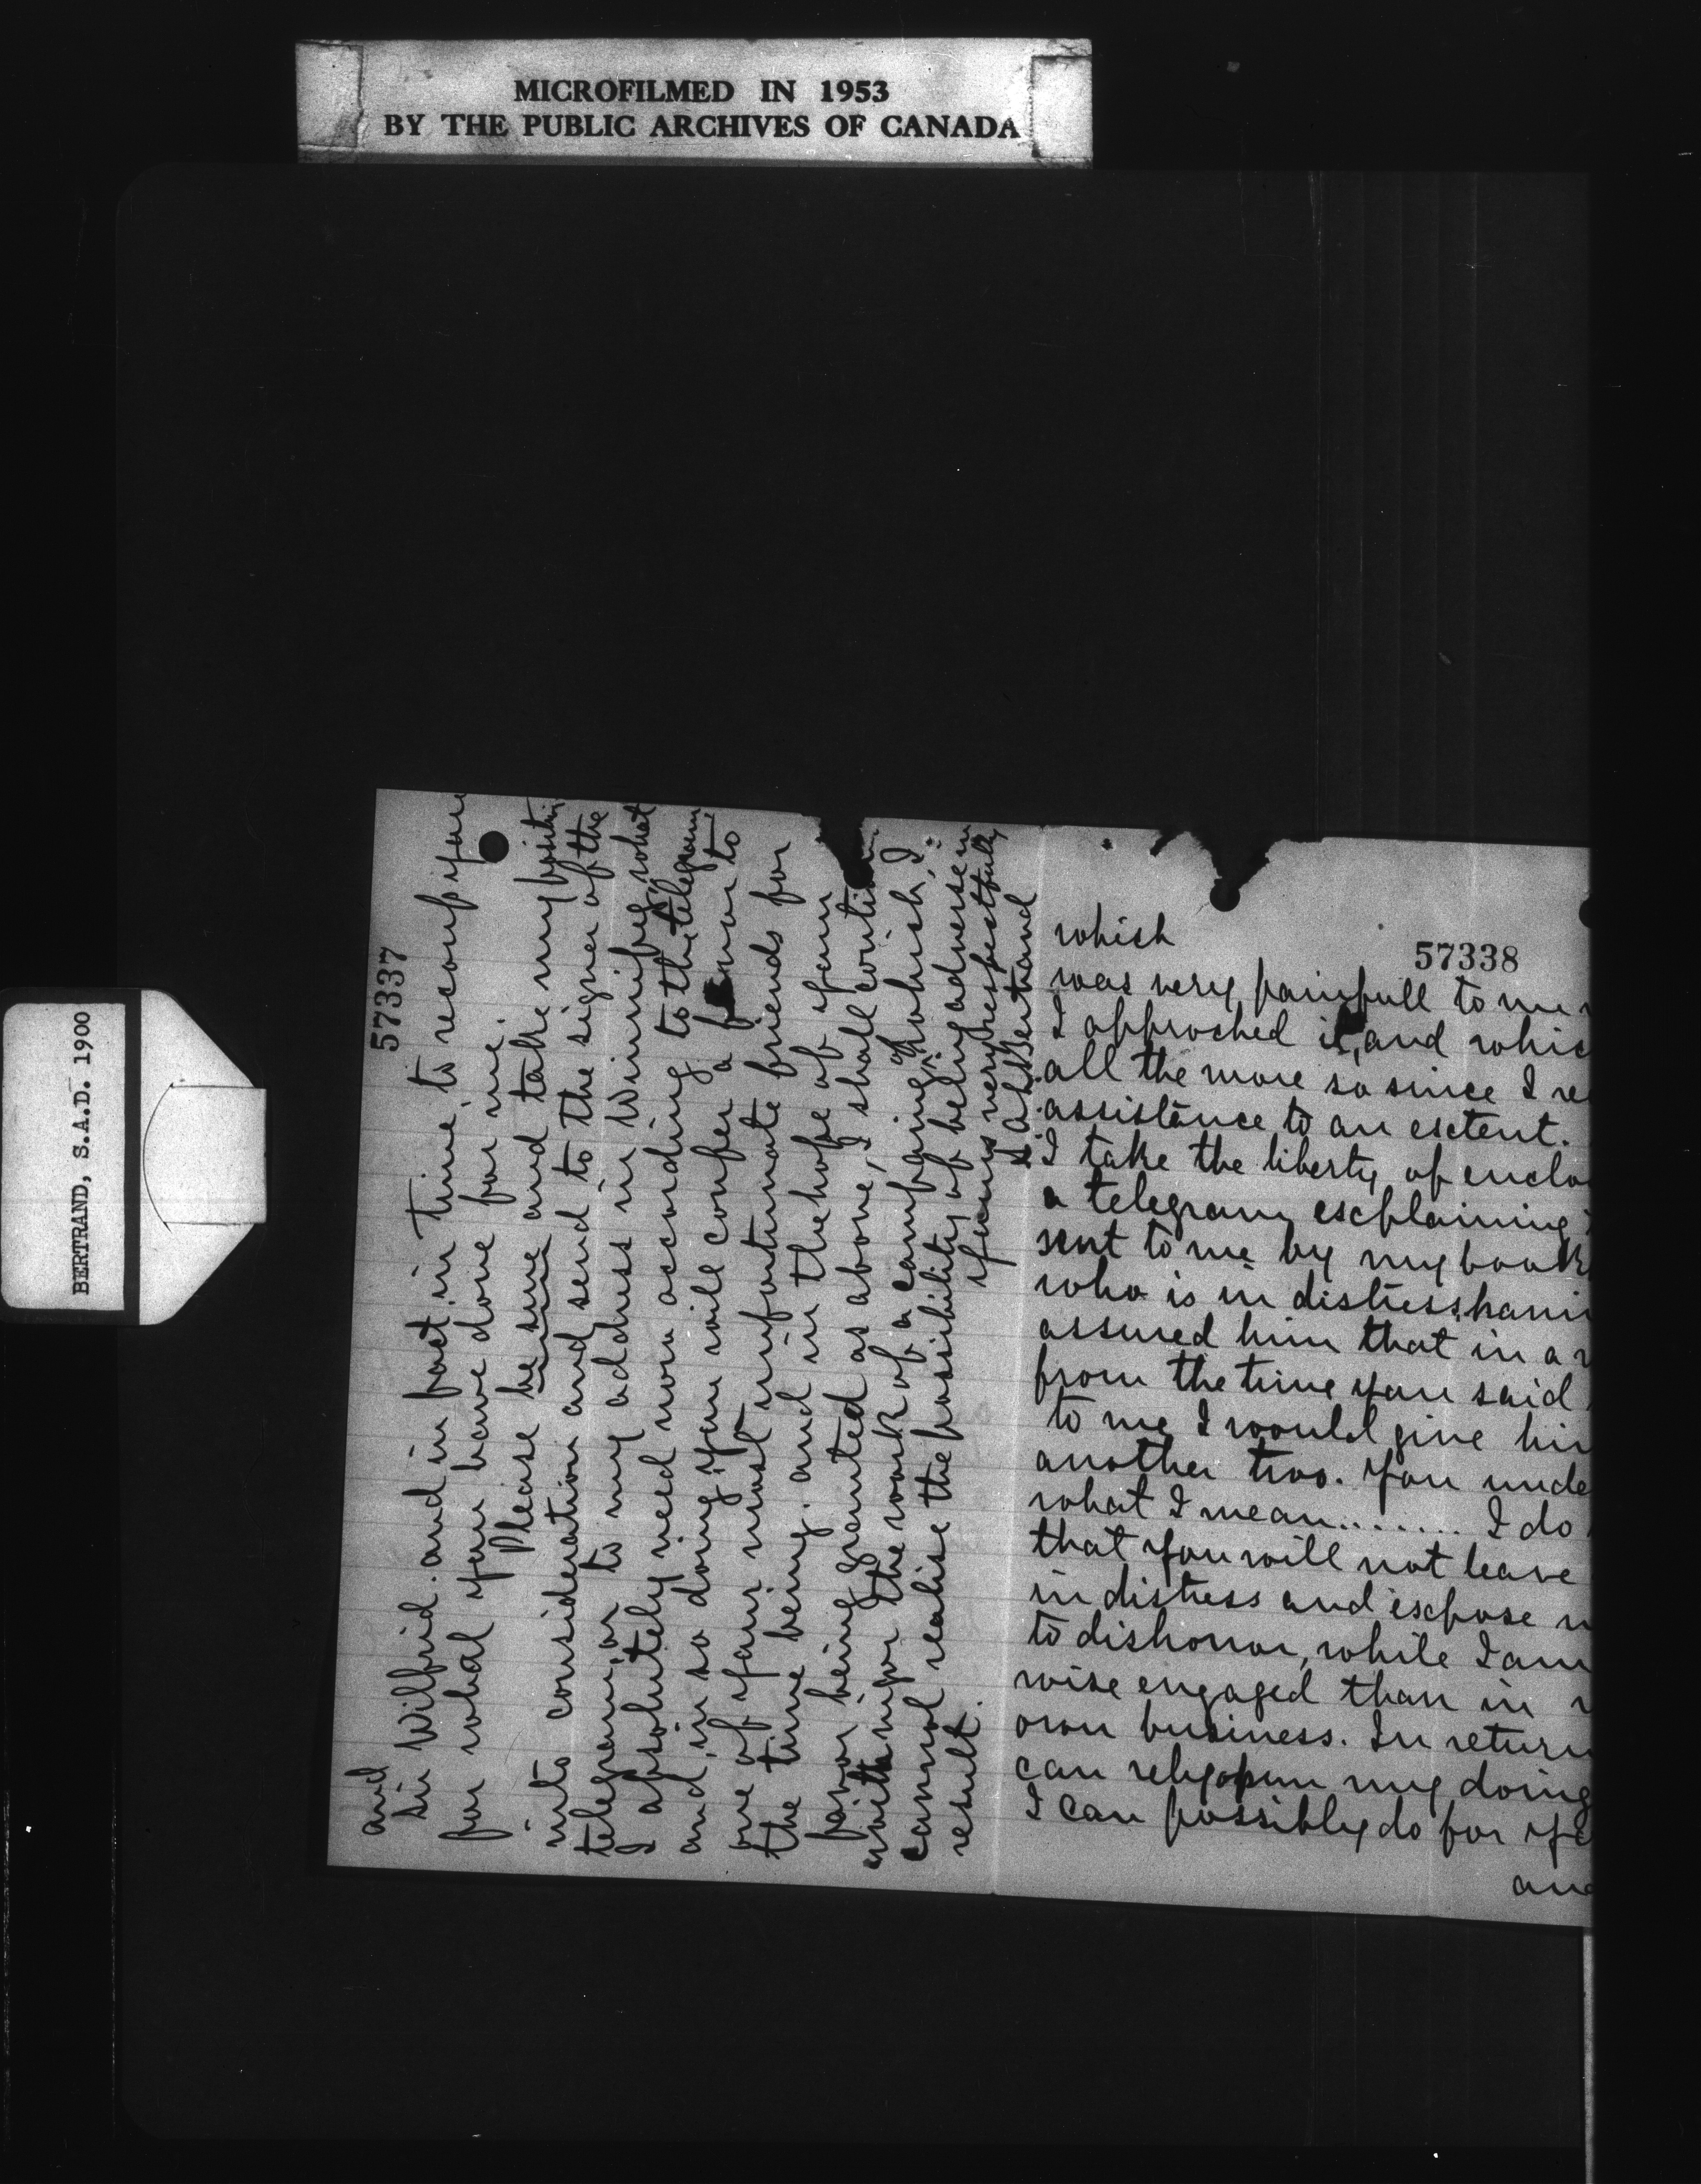 MICROFILMED IN 1953
BY THE PUBLIC ARCHIVES OF CANADA
BERTRAND, S.A.D. 1900
57338
which
was very painfull to me
I approched it, and whic
all the more so since I re
assistance to an esctent.
I take the liberty of enclo
a telegram esxplaining
sent to me by my book
who is in distress, havi
assured him that in a
from the time you said
to me I would give hi
another two. You unde
what I mean........ I do
that you will not leave
in distress and escpose
to dishonor, while I am
wise engaged than in
own business. In return
can rely opun my doing
I can possibly do for yo
and
57337
and
Sir Wilfrid. and in fact in time to recoup you
for what you have done for me.
Please be sure and take my positi
into consideration and send to the signer of the
telegram, or to my address in Winnipeg, what
I absolutely need now according to the telegram
and in so doing you will confer a favor to
one of your most unfortunate friends for
the time being. and in the hope of your
favor being granted as above, I shall contin
with vigor the work of a campaing, of which, I
cannot realise the possibility of being adverse in
result.
yours very respectfully
S A D Bertrand